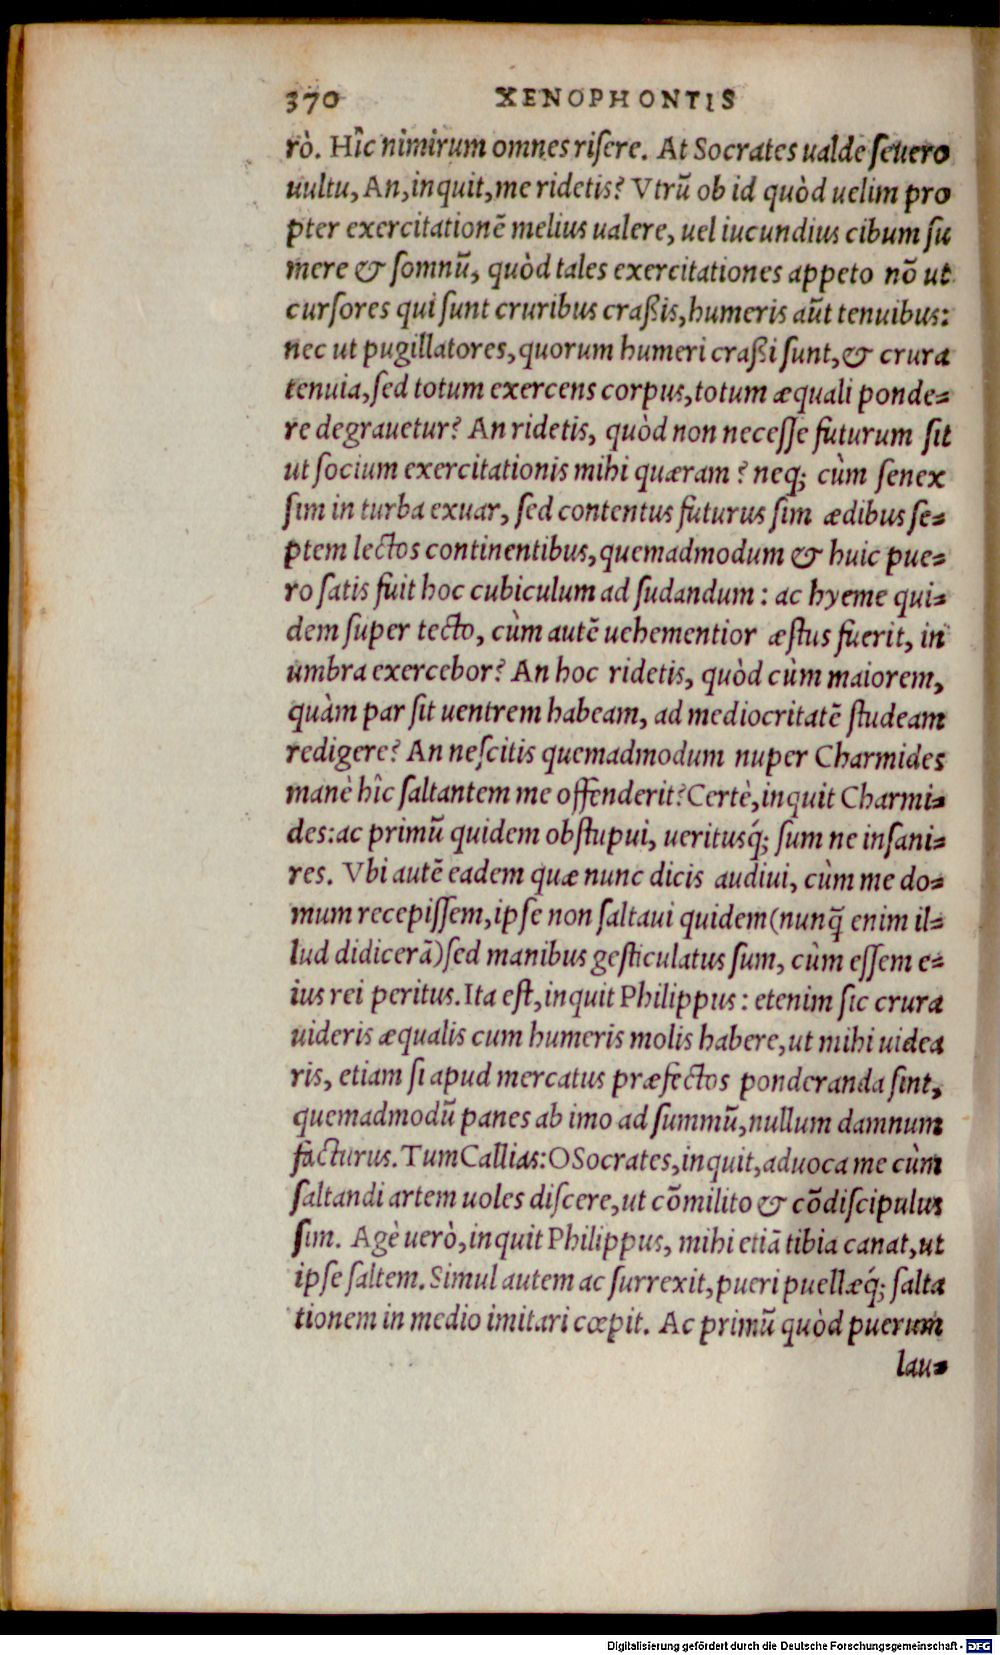 370 XENOPHONTIS
rò. Hîc nimirum omnes risere. At Socrates ualde seuero
uultu, An, inquit, me ridetis? Vtrũ ob id quòd uelim pro
pter exercitationẽ melius ualere, uel iucundius cibum su
mere & somnũ, quòd tales exercitationes appeto nõ ut
cursores qui sunt cruribus craßis, humeris aũt tenuibus:
nec ut pugillatores, quorum humeri craßi sunt, & crura
tenuia, sed totum exercens corpus, totum æquali ponde=
re degrauetur? An ridetis, quòd non necesse futurum sit
ut socium exercitationis mihi quæram? neq; cùm senex
sim in turba exuar, sed contentus futurus sim ædibus se=
ptem lectos continentibus, quemadmodum & huic pue=
ro satis fuit hoc cubiculum ad sudandum: ac hyeme qui=
dem super tecto, cùm autẽ uehementior æstus fuerit, in
umbra exercebor? An hoc ridetis, quòd cùm maiorem,
quàm par sit uentrem habeam, ad mediocritatẽ studeam
redigere? An nescitis quemadmodum nuper Charmides
manè hîc saltantem me offenderit? Certè, inquit Charmi=
des: ac primũ quidem obstupui, ueritusq́; sum ne insani=
res. Vbi autẽ eadem quæ nunc dicis audiui, cùm me do=
mum recepissem, ipse non saltaui quidem (nunq̃ enim il=
lud didicerã) sed manibus gesticulatus sum, cùm essem e=
ius rei peritus. Ita est, inquit Philippus: etenim sic crura
uideris æqualis cum humeris molis habere, ut mihi uidea
ris, etiam si apud mercatus præfectos ponderanda sint,
quemadmodũ panes ab imo ad summũ, nullum damnum
facturus. Tum Callias: O Socrates, inquit, aduoca me cùm
saltandi artem uoles discere, ut cõmilito & cõdiscipulus
sim. Agè uerò, inquit Philippus, mihi etiã tibia canat, ut
ipse saltem. Simul autem ac surrexit, pueri puellæq́; salta
tionem in medio imitari cœpit. Ac primũ quòd puerum
lau=
Digitalisierung gefördert durch die Deutsche Forschungsgemeinschaft - DFG